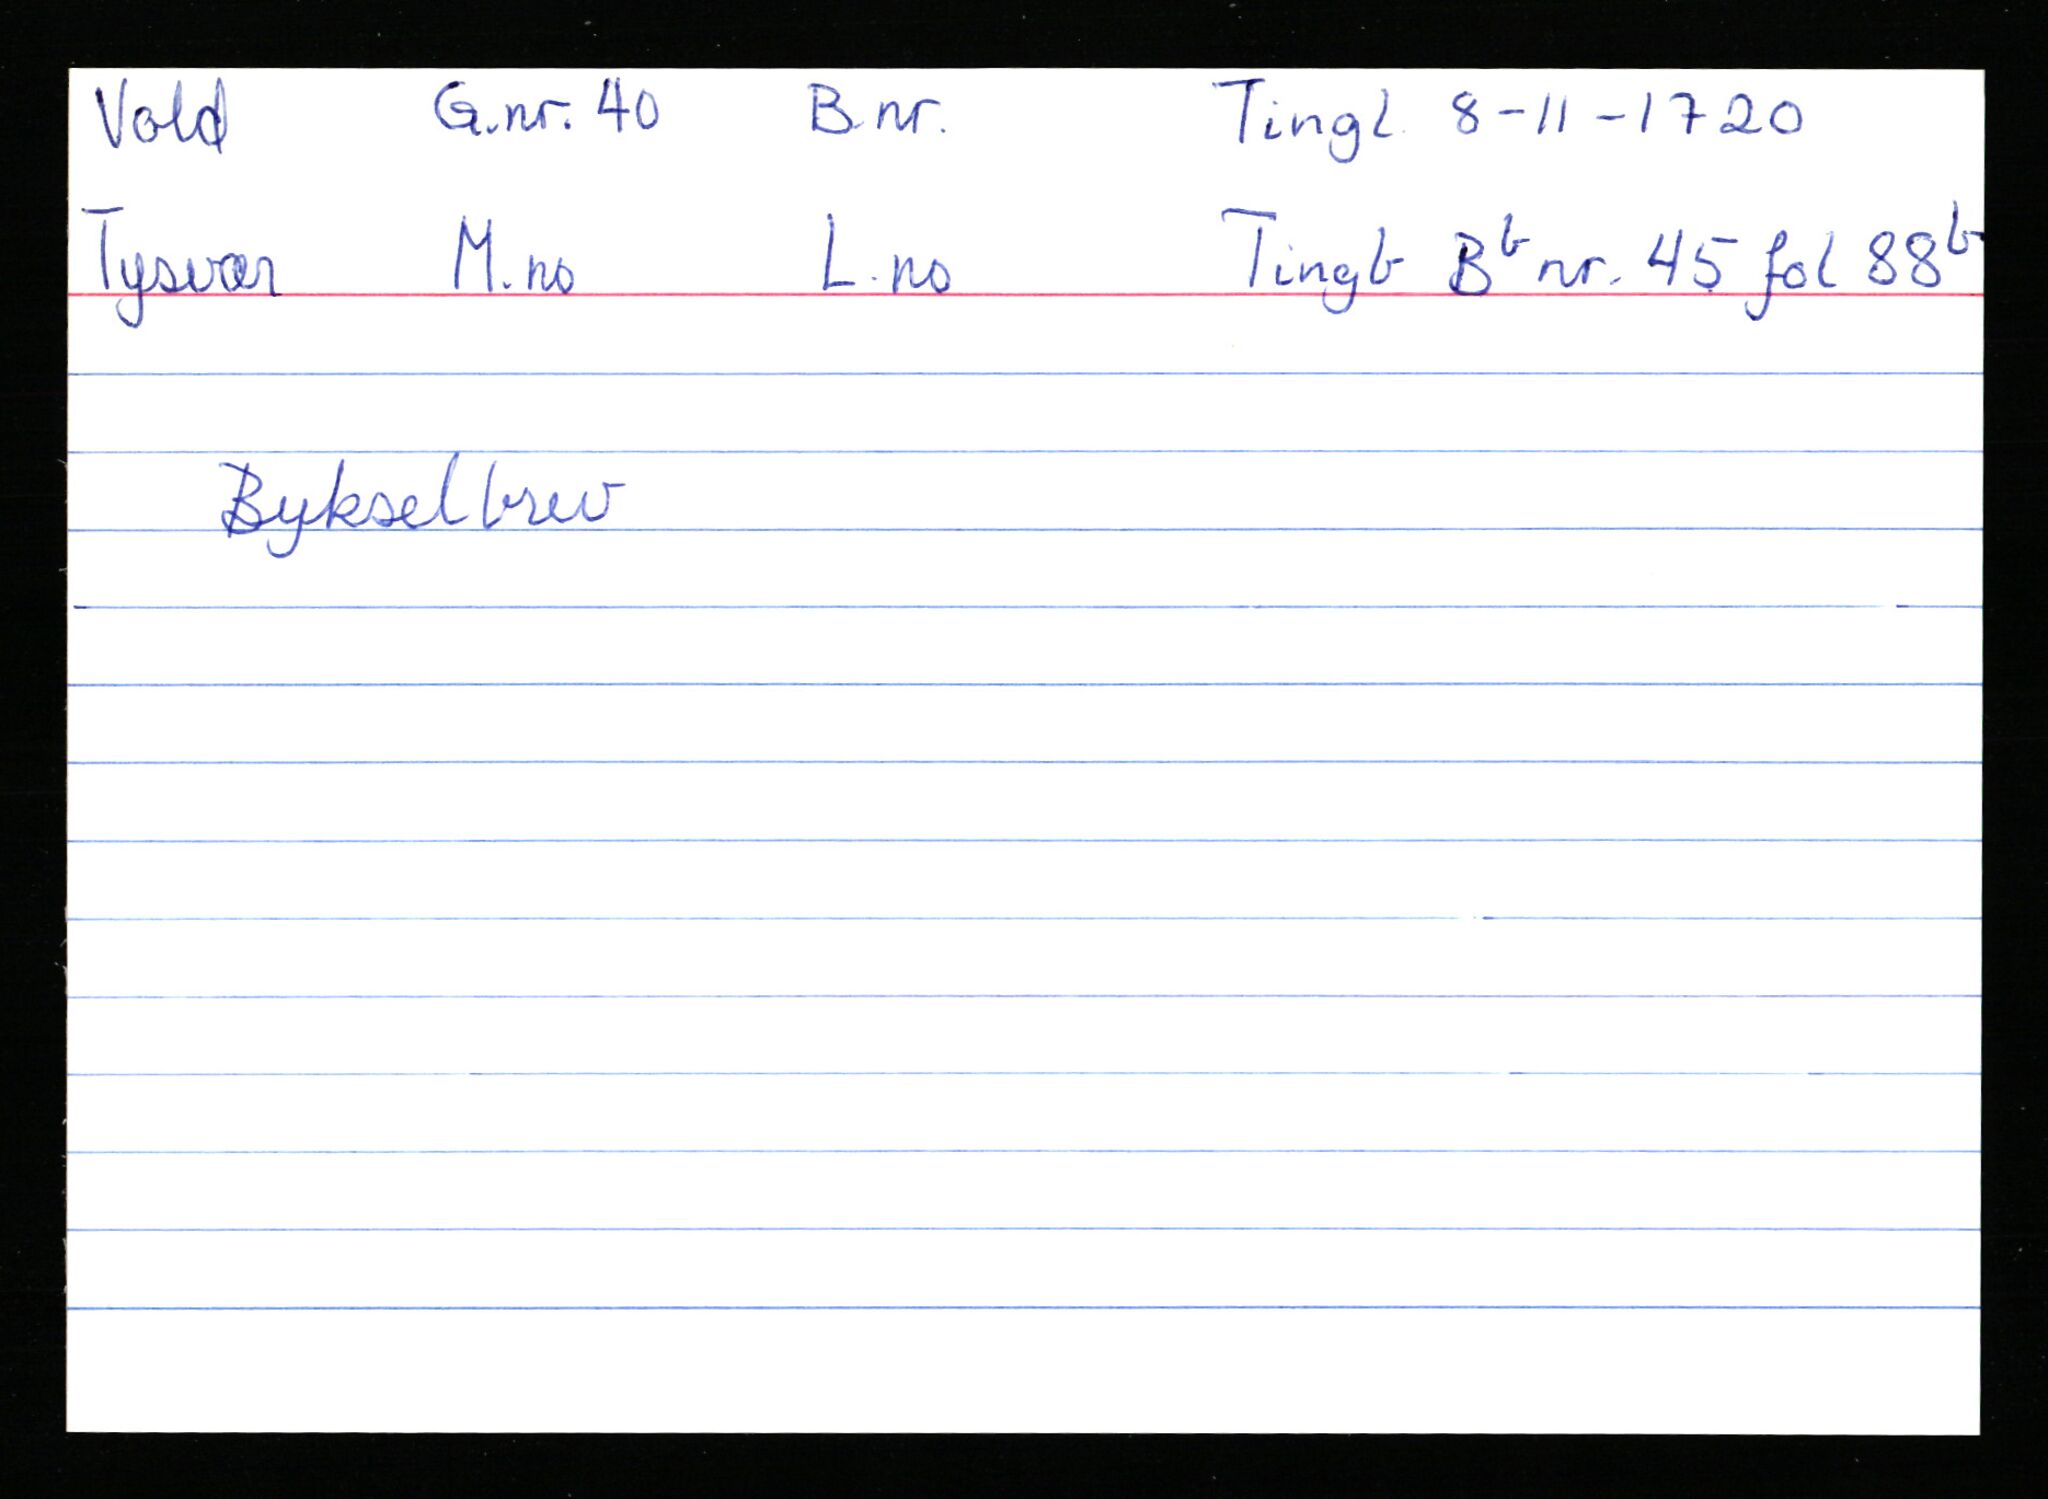 Vold G.nr. 40 B.nr. Tingl. 8-11-1720
Tysvær M.no L.no Tingb Bb nr. 45 fol 88b
Bykselbrev